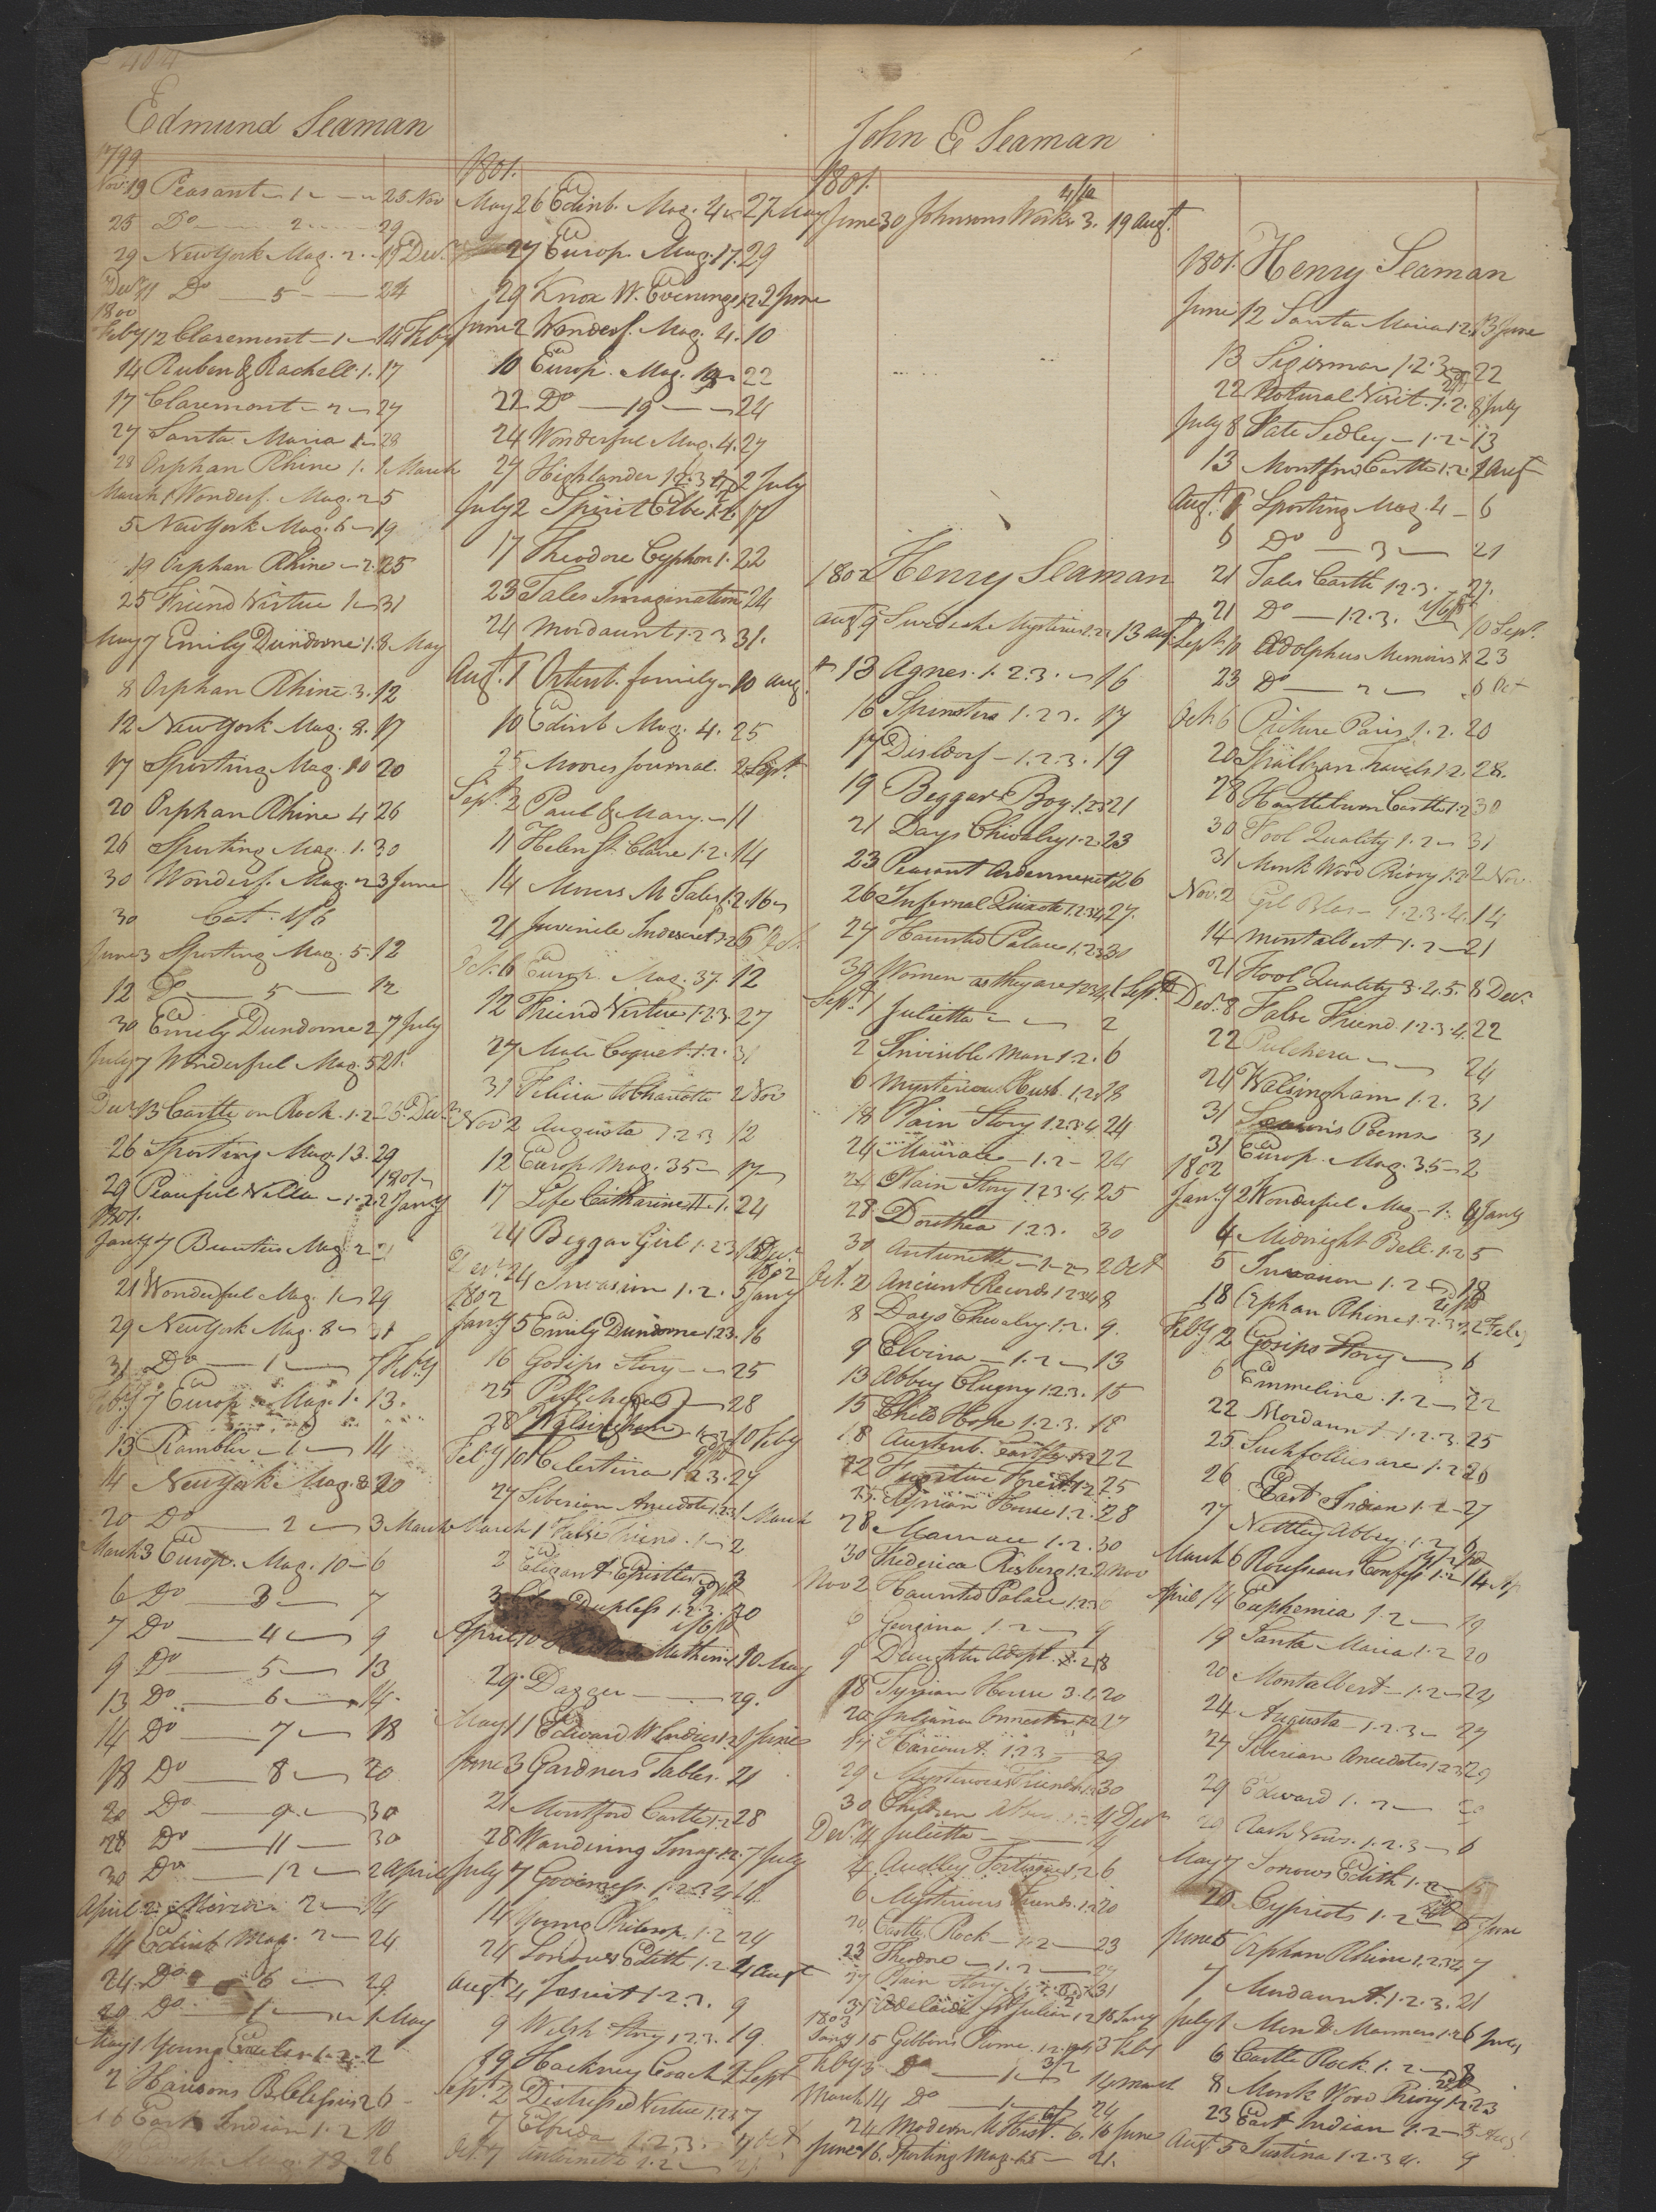 404
Edmund Seaman
1799
Nov. 19 Peasant - 1 - 25 Nov
25 Do - 2 - 29
29 New York Mag. 2. - 19 Decr
Do - 5 - 24
1800
Feby 12 Claremont - 1 - 14 Feby
14 Ruben & Rachell. 1. 17
17 Claremont - 2 - 27
27 Santa Maria 1 - 28
28 Orphan Rhine 1. 1 March
March 1 Wonderf. Mag. 2 5
5 New York Mag. 6 - 19
19 Orphan Rhine - 2. 25
25 Friend Virtue 1 - 31
May 7 Emily Dundorne 1. 8 May
8 Orphan Rhine. 3. 12
12 New York Mag. 8. 17
17 Sporting Mag. 10 20
20 Orphan Rhine 4 26
26 Sporting Mag. 1. 30
30 Wonderf. Mag. 2 3 June
30 Cat. 1/6
June 3 Sporting Mag. 5. 12
12 Do - 5 - 12
30 Emily Dundorne 2 7 July
July 7 Wonderful Mag. 5 21.
Decr 13 Castle on Rock. 1.2 - 26 Decr
26 Sporting Mag. 13. 29
1801
29 Peaceful Villa - 1.2. 2 Jany
1801.
Jany 7 Beauties Mag. 2 - 21
21 Wonderful Mag. 1 - 29
29 New York Mag. 8 - 31
31 Do - 1 - 7 Feby
Feby 7 Europ. Mag. 1. 13.
13 Rambler - 1 - 14
14 New York Mag. 8 20
20 Do - 2 - 3 March
March 3 Europ. Mag. 10 - 6
6 Do - 3 - 7
7 Do - 4 - 9
9 Do - 5 - 13
13 Do - 6 - 14.
14 Do - 7 - 18
18 Do - 8 - 20
20 Do - 9 - 30
28 Do - 11 - 30
30 Do - 12 - 2 April
April 2 2 - 14
14 Edinb Mag. 2 - 24
24. Do - 6 - 29
Do - 1 - 1 May
May 1 Young 1.2. 2
2 Harisons 2 6
6 East Indian 1.2 10
Mag. 18. 26
1801.
May 26 Edinb. Mag. 4 - 27 May
27 Europ. Mag. 17. 29
29 Knox W. Evenings 1.2 2 June
June 2 Wonderf. Mag. 4. 10
10 Europ. Mag. 22
22 Do - 19 - 24
24 Wonderful Mag. 4. 27
27 Highlander 1.2.3 2 July
July 2 Spirit Elbe 1.2 17
17 Theodore Cyphon 1. 22
23 Tales Imagination 24
24 Mordaunt 1.2 3 31.
Augt 1 Ortenb. family - 10 Aug.
10 Edinb Mag. 4. 25
25 Moores Journal. 2 Sept.
Sept. 2 Paul & Mary. - 11
11 Helen St. Clare 1.2. 14
14 Moors M Tales 1.2. 16
21 Juvenile Indiscret 1.2 6 Oct.
Oct. 6 Europ. Mag. 37. 12
12 Friend Virtue 1.2.3. 27
27 Male Coquet. 1.2. 31
31 Felicia to Charlotte 2 Nov
Nov 2 Augusta 1 2 3 12
12 Europ Mag. 35 - 17
17 Life Catharine II. 1. 24
24 Beggar Girl 1.2 3 Decr
1802
Decr 24 Invasion 1.2. 5 Jany
1802
Jany 5 Emily Dundorne 1.2 3. 16
16 Gosips Story - 25
25 - 28
28 Walsingham 1.2 10 Feby
Feby 10 Celestina 1.2 3. 27
27 Siberian Anecdotes 1.2.3 1 March
March 1 False Friend. 1 - 2
2 Elegant Epistles 3
3 Dupless 1.2.3. 20
April 10 Mathew 1 10 May
29. Dagger - 29.
May 11 Edward W. Indies 1.2 1 June
June 3 Gardners Tables. 21
21 Montford Castle 1.2 28
28 Wandering Imag. 1.2. 7 July
July 7 Governess. 1 2 3 4 14.
14 Young Philosop. 1.2 24
24 Sorrows Edith 1.2 4 Augt
Augt. 4 Jesuit 1.2.3. 9
9 Welsh Story 1 2 3. 19.
19 Hackney Coach 2 Sept
Sept. 2 Distressed Virtue 1.2.3 7
7 Elfrida 1.2.3. 7 Oct
Oct. 7 Antoinette 1.2 -
John E Seaman
1801.
4/10
June 30 Johnsons Works 3. 19 Augt.
1802 Henry Seaman
Augt 9 Swedish Mysteries 1.2.3 13 Augt
13 Agnes. 1.2.3. - 16
16 Spinsters 1.2 3. 17
17 Disldorf - 1.2.3. 19
19 Beggar Boy 1.2 3 21
21 Days Chivalry 1.2. 23
23 Peasant Ardenne 26
26 Infernal Quixote 1.2.3 4 27.
27 Haunted Palace 1.2 3 30
30 Women as they are 1 2 3 4 1 Sept.
Sept. 1 Julietta - 2
2 Invisible Man 1.2. 6
6 Mysterious Husb. 1.2.3 18
18 Plain Story 1.2.3.4 24
24 - 1.2 - 24
24 Plain Story 1.2 3.4. 25
28 Dorothea 1.2 3. 30
30 Antoinette - 1 - 2 2 Oct
Oct. 2 Ancient Records 1 2 3 4 8
8 Days Chivalry. 1.2. 9.
9 Elvira - 1.2 - 13
13 Abbey Clugny 1.2.3. 15
15 Child Hope 1.2.3. 18
18 Austenb. Castle 1.2 22
22 Fugitive Forest. 1.2 25
25. Tyrian House 1.2. 28
28 1.2. 30
30 Frederica Risberg 1.2. 2 Nov
Nov 2 Haunted Palace 1.2 3 6
6 Georgina 1.2 - 9
9 Daughter Adopt. 18
18 Tyrian House 3. 20
20 Juliana 1.2 27
27 Harcourt. 1 2 3 - 29
29 Mysterious Friends 1.2 30
30 Children Abbey 4 Decr
Decr. 4 Julietta -
4 Audley Fortescue 1.2 6
6 Mysterious Friends. 1.2 20
20 Castle Rock - 1.2 - 23
23 Theodore - 1.2 - 27
27 Plain Story 31
31 Adelaide St Julian 1.2 15 Jany
1803
Jany 15 Gibbons Rome 3 Feby
Feby 3 Do 14 March
March 14 Do 24
24 Modern U. Hist. 6. 16 June
June 16. Sporting Mag. 21.
1801. Henry Seaman
June 12 Santa Maria 1.2. 13 June
13 Sigismar 1.2.3 22
22 Natural Visit. 1.2. 8 July
July 8 Kate Sedley - 1.2 - 13
13 Montford Castle 1.2. 1 Augt
Augt. 1 Sporting Mag. 4 - 6
6 Do - 3 - 21
21 Tales Castle 1.2.3. 21.
21 Do - 1.2.3. 10 Sept.
Sept 10 Adolphus Memoirs 1. 23
23 Do - 2 - 6 Oct
Oct 6 Picture Paris 1.2. 20
20 Travels 1.2. 28.
28 Castle 1.2 30
30 Fool Quality 1.2 - 31
31 Monk Wood Priory 1.2 2 Nov.
Nov. 2 Gil Blas - 1.2.3.4. 14
14 Montalbert 1.2 - 21
21 Fool Quality 3.4.5. 8 Decr.
Decr. 8 False Friend. 1.2.3.4. 22
22 Pulchera - 24
24 Walsingham 1.2. 31
31 Poems 31
31 Europ. Mag. 35 - 2
1802
Jany 2 Wonderful Mag - 1. 4 Jany
4 Midnight Bell. 1.2 5
5 Invasion 1.2 - 18
18 Orphan Rhine 1.2.3. 2 Feby
Feby 2 Gosips Story - 6
6 Emmeline. 1.2 - 22
22 Mordaunt 1.2.3. 25
25 Such follies are 1.2 26
26 East Indian 1.2 - 27
27 Nettley Abbey. 1.2 6
March 6 Rousseaus Confess 1.2 14 Ap
April 14 Euphemia 1.2 - 19
19 Santa Maria 1.2 20
20 Montalbert - 1.2 - 24
24 Augusta - 1.2.3 - 27
27 Siberian Anecdotes 1.2 3 29
29 Edward 1.2 -
29 Rash Vows. 1.2.3 - 6
May 7 Sorrows Edith 1.2
20 Cypriots 1.2 - 5 June
June 5 Orphan Rhine 1.2.3.4 7
7 Mordaunt. 1.2.3. 21
July 1 Men & Manners 1.2 6 July
6 Castle Rock 1.2 - 8
8 Monk Wood Priory 1.2 23
23 East Indian 1.2 - 5 Augt
Augt 5 Justina 1.2.3 4. 9